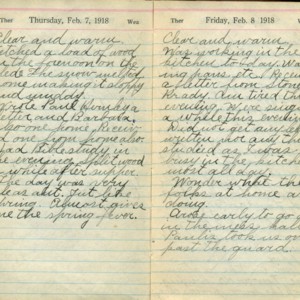 Ther Thursday, Feb. 7, 1918 Wea
Clear and warm.
a load of wood
in the forenoon on the
The snow melted
some making it sloppy
and muddy.
Wrote Paul
letter and Barbara,
also one home. Receiv
one from home also.
Had Bible study in
the evening. Split wood
a while after supper.
The day was very
Just like
spring. Almost gives
me the spring fever.
Ther Friday, Feb. 8 1918 Wea
Clear and warm.
Was working in the
kitchen to-day. Wash
ing pans, etc. Receiv
a letter from
Am tired this
evening. Were singing
a while this evening.
Did not get any
not any
studied as I was
busy in the kitchen
most all day.
Wonder what the
folks at home are
doing.
Arose early to go
in the mess hall.
took us out
past the guard.